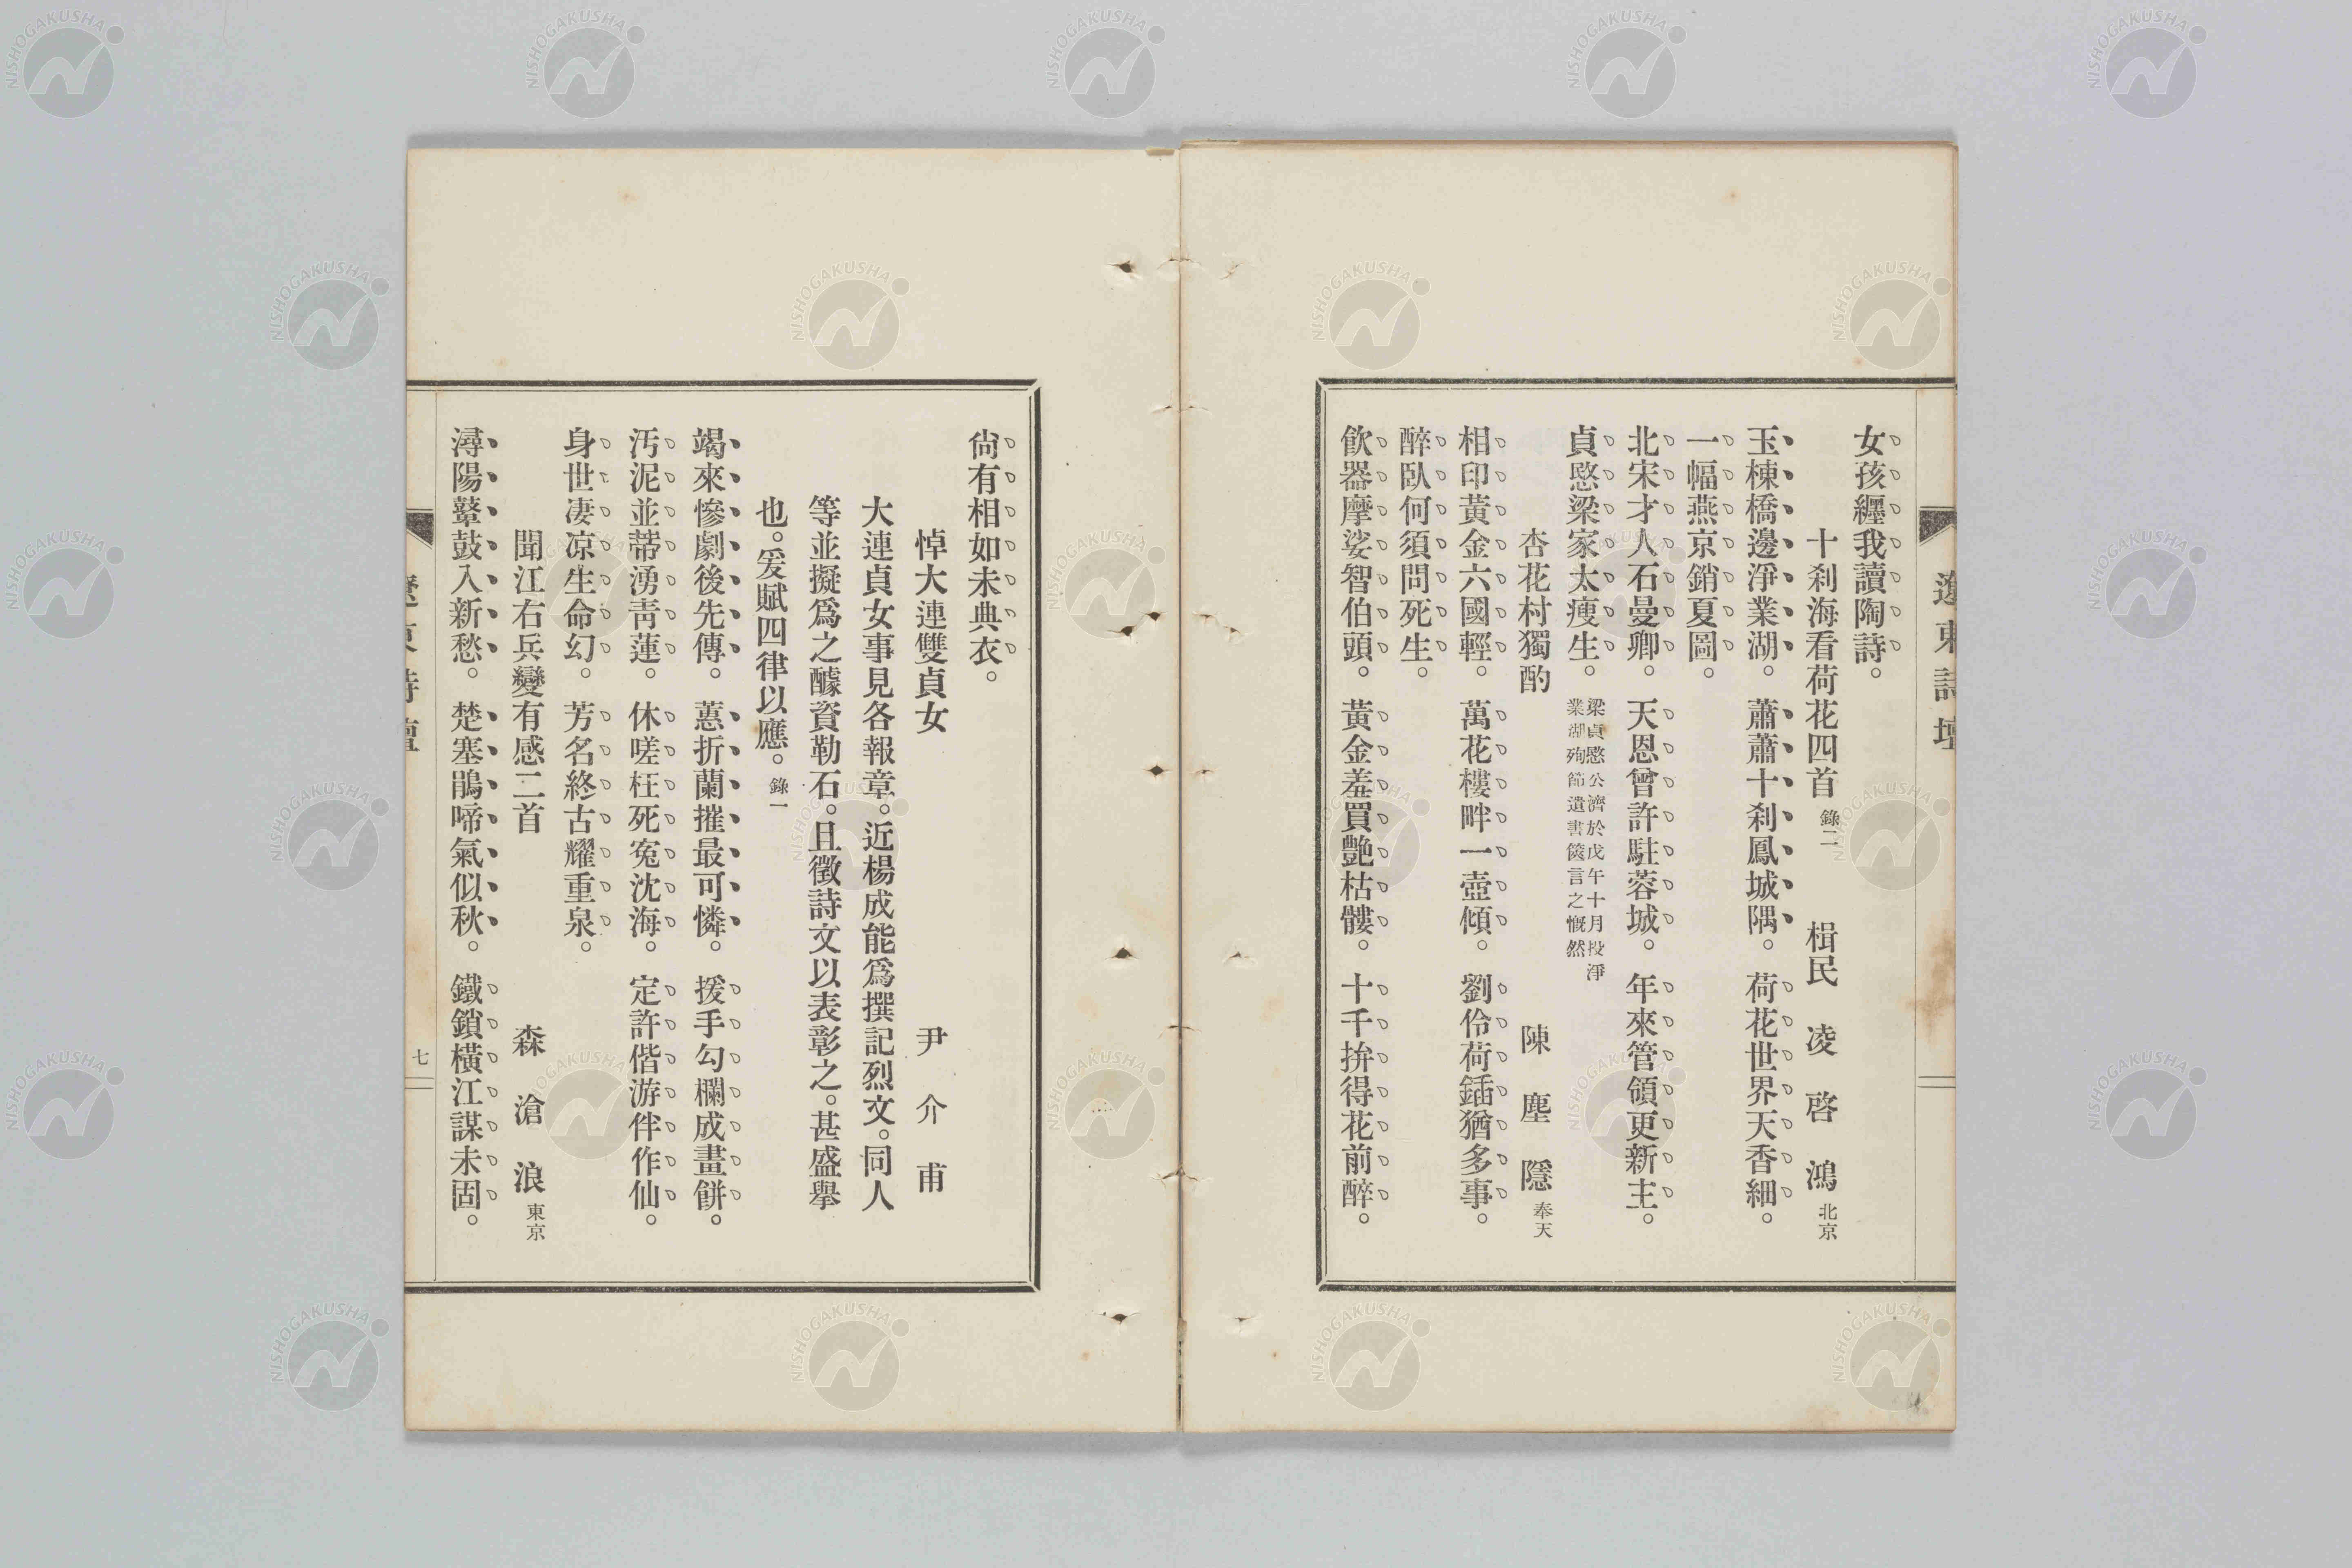 遼東詩壇
女孩纒我讀陶詩。
十刹海看荷花四首 錄二 楫民 凌啓鴻 北京
玉棟橋邊淨業湖。蕭蕭十刹鳳城隅。荷花世界天香細。
一幅燕京銷夏圖。
北宋才人石曼卿。天恩曾許駐蓉城。年來管領更新主。
貞愍梁家太瘦生。梁貞愍公濟於戊午十月投淨業湖殉節遺書篋言之慨然
杏花村獨酌 陳塵隱 奉天
相印黃金六國輕。萬花樓畔一壺傾。劉伶荷鍤猶多事。
醉臥何須問死生。
飲器摩娑智伯頭。黃金羞買艷枯髏。十千拚得花前醉。
尙有相如未典衣。
悼大連雙貞女 尹介甫
大連貞女事見各報章。近楊成能爲撰記烈文。同人
等並擬爲之醵資勒石。且徵詩文以表彰之。甚盛擧
也。爰賦四律以應。錄一
竭來慘劇後先傳。蕙折蘭摧最可憐。援手勾欄成畫餅。
汚泥並蔕湧靑蓮。休嗟枉死寃沈海。定許偕游伴作仙。
身世凄凉生命幻。芳名終古耀重泉。
聞江右兵變有感二首 森滄浪 東京
潯陽鼙鼓入新愁。楚塞鵑啼氣似秋。鐵鎖橫江謀未固。
遼東詩壇
七
NISHOGAKUSHA